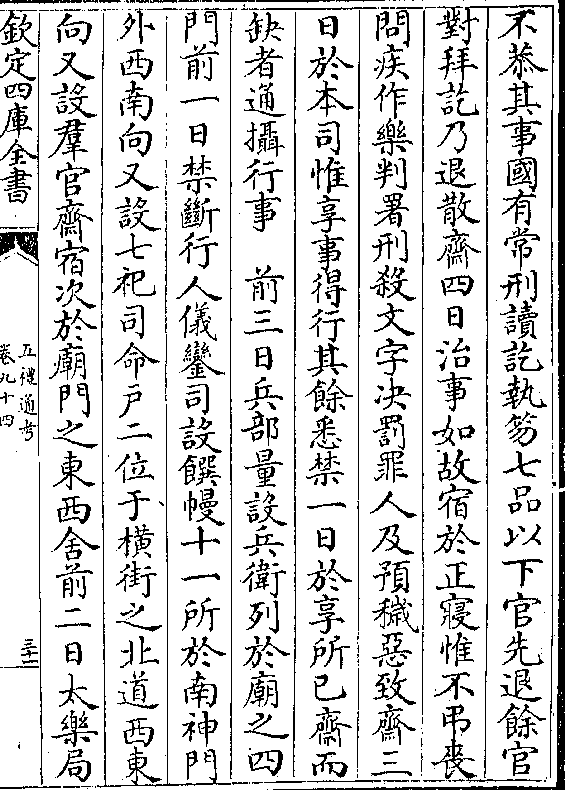 不恭其事國有常刑讀訖執笏七品以下官先退餘官
對拜訖乃退散齋四日治事如故宿於正寢惟不弔喪
問疾作樂判署刑殺文字决罰罪人及預穢惡致齋三
日於本司惟享事得行其餘悉禁一日於享所已齋而
缺者通攝行事　前三日兵部量設兵衛列於廟之四
門前一日禁斷行人儀鑾司設饌幔十一所於南神門
外西南向又設七祀司命戶二位于横街之北道西東
向又設羣官齋宿次於廟門之東西舍前二日太樂局
欽定四庫全書
五禮通考
卷九十四
三十一